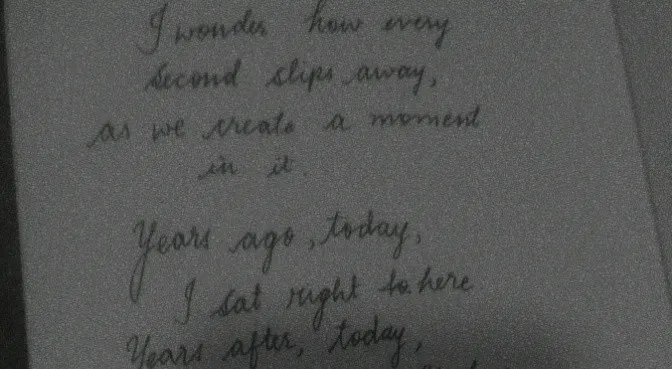 I wonder how every
second slips away,
as we create a moment
in it.
Years ago, today,
I sat right to here
Years after, today,